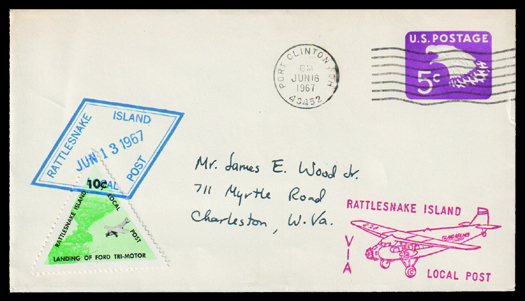 U.S. POSTAGE
5c
PORT CLINTON
JUN 16
1967
43452
RATTLESNAKE ISLAND
JUN 13 1967
LOCAL POST
10¢
RATTLESNAKE ISLAND
LOCAL POST
LANDING OF FORD TRI-MOTOR
Mr. James E. Wood Jr.
711 Myrtle Road
Charleston, W.Va.
RATTLESNAKE ISLAND
VIA
LOCAL POST